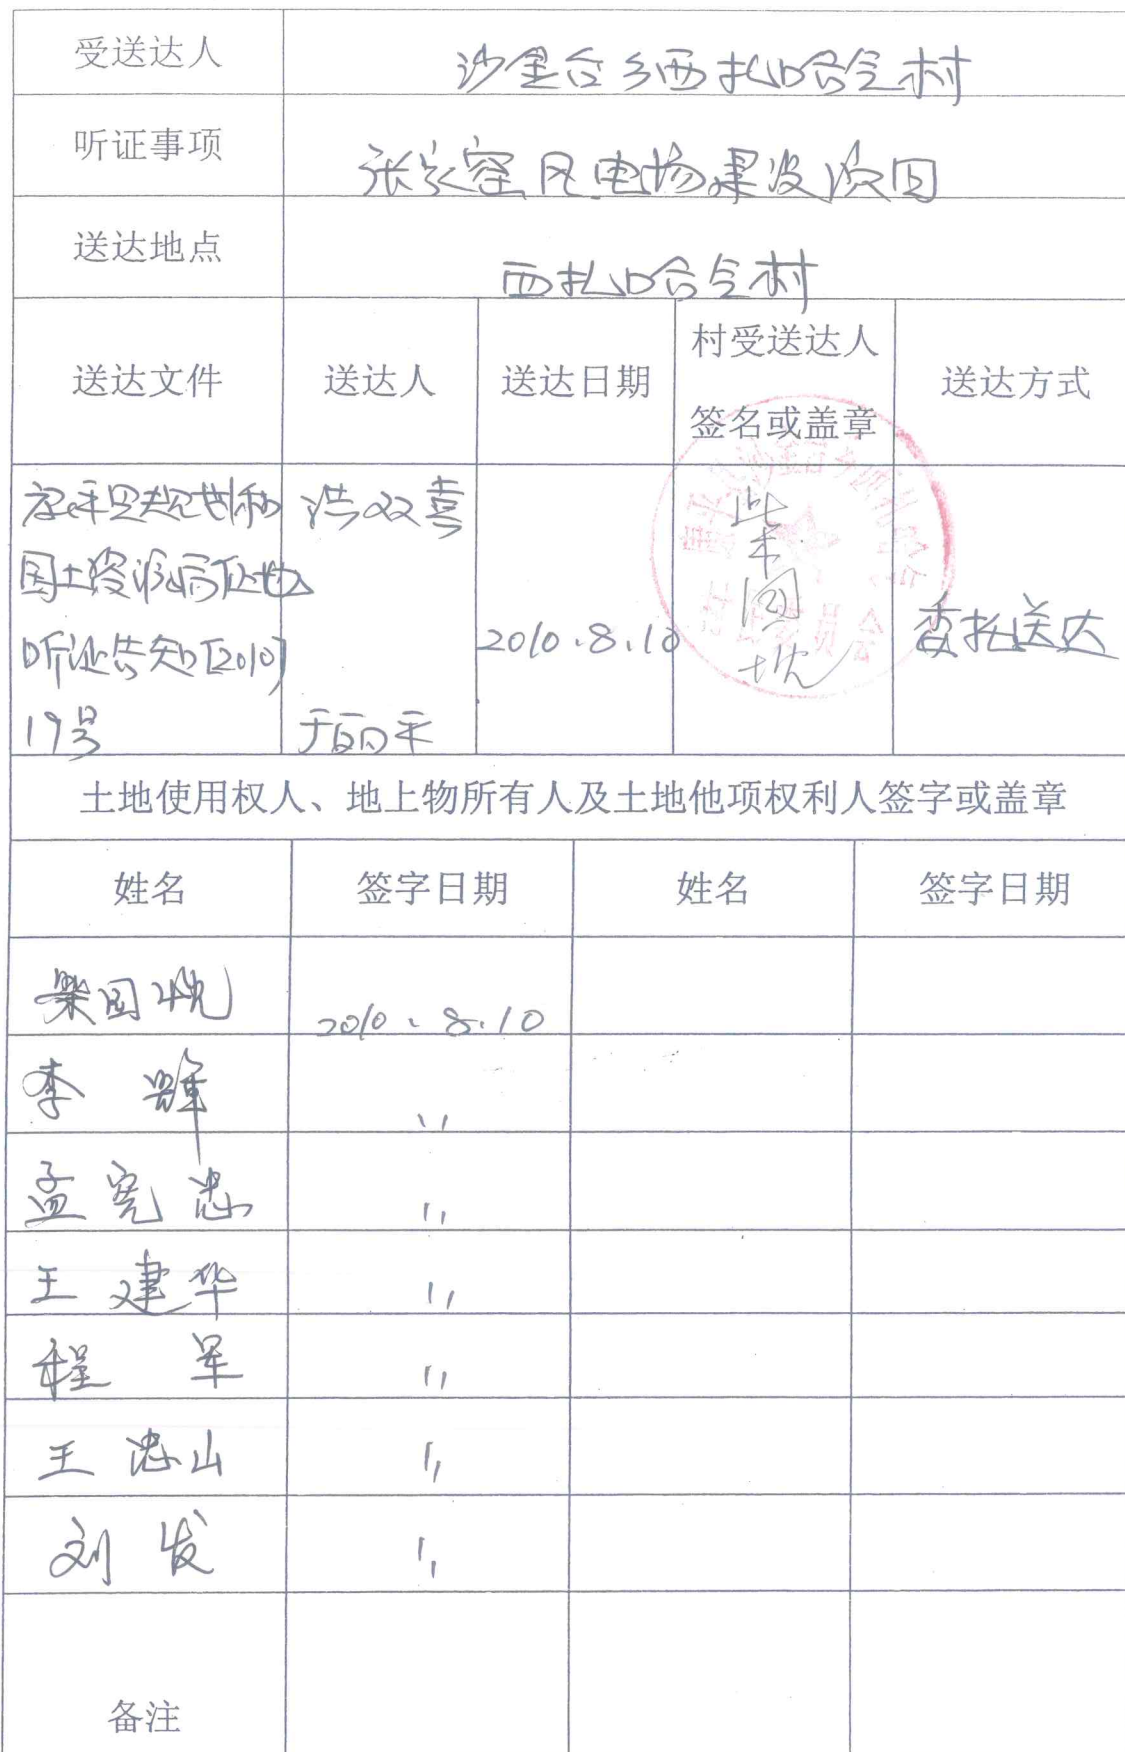 受送达人 沙金台乡西扎哈气村
听证事项 张家窑风电场建设项目
送达地点 西扎哈气村
送达文件 送达人 送达日期 村受送达人签名或盖章 送达方式
康平县规划和 洪双喜
国土资源局征地
听证告知[2010] 2010.8.10 柴国忱 委托送达
19号 于丽平
土地使用权人、地上物所有人及土地他项权利人签字或盖章
姓名 签字日期 姓名 签字日期
柴国忱 2010.8.10
李 辉 〃
孟宪忠 〃
王建华 〃
程 军 〃
王忠山 〃
刘 发 〃
备注